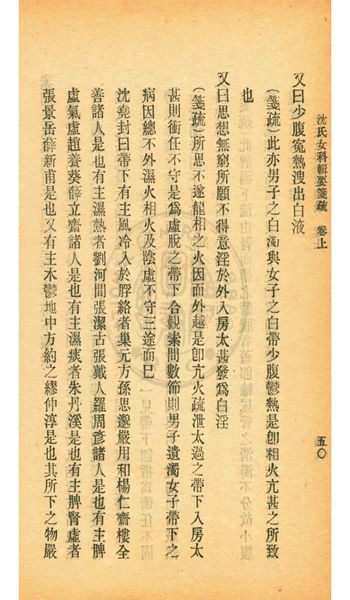 沈氏女科輯要箋疏 卷上 五〇
又曰少腹寃熱溲出白液
(箋疏)此亦男子之白濁與女子之白帶少腹鬱熱是卽相火亢甚之所致
也
又曰思想無窮所願不得意淫於外入房太甚發爲白淫
(箋疏)所思不遂龍相之火因而外越是卽亢火疏泄太過之帶下入房太
甚則衝任不守是爲虛脫之帶下合觀素問數節則男子遺濁女子帶下之
病因總不外濕火相火及陰虛不守三途而巳
沈堯封曰帶下有主風冷入於脬絡者巢元方孫思邈嚴用和楊仁齋樓全
善諸人是也有主濕熱者劉河間張潔古張戴人羅周彥諸人是也有主脾
虛氣虛趙養葵薛立齋諸人是也有主濕痰者朱丹溪是也有主脾腎虛者
張景岳薛新甫是也又有主木鬱地中方約之繆仲淳是也其所下之物嚴